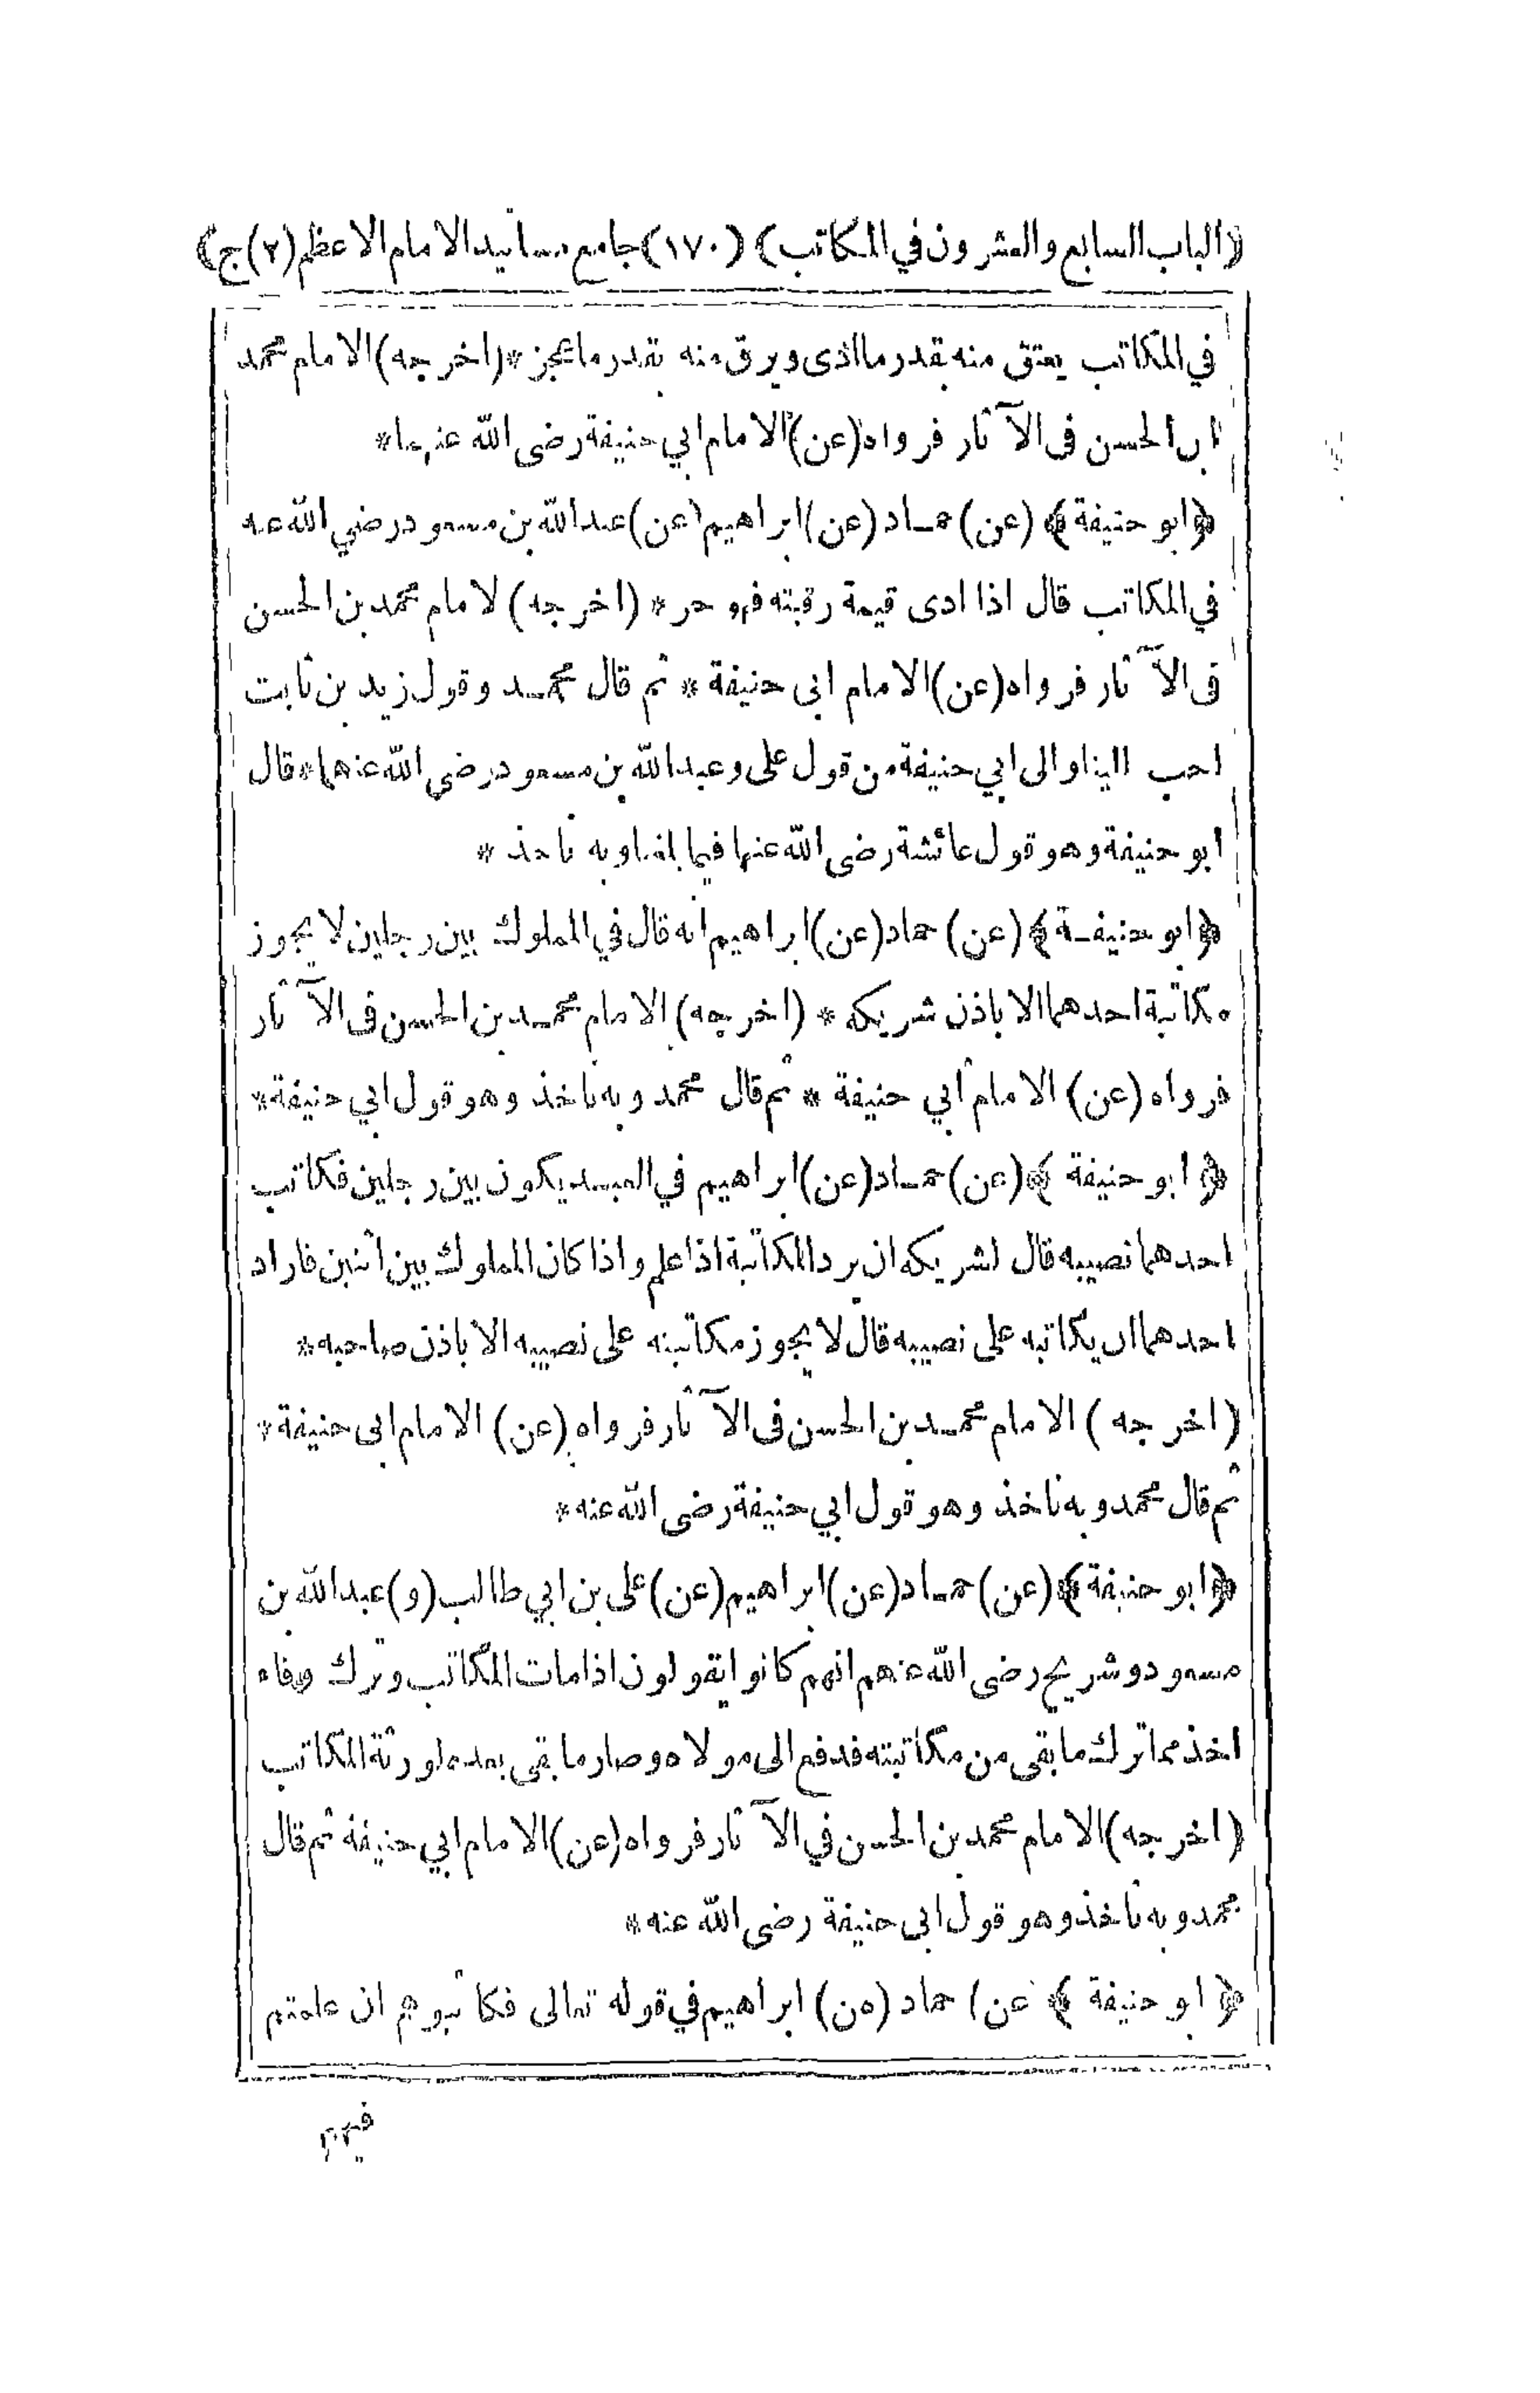 ﴿الباب السابع والعشرون في المكاتب﴾ (١٧٠) جامع مسانيد الامام الاعظم (٢) ج﴾
في المكاتب يعتق منه بقدر ما ادى ويرق منه بقدر ما عجز * (اخرجه) الامام محمد
ابن الحسن فى الآثار فرواه (عن) الامام ابي حنيفة رضى الله عنهما *
﴿ابو حنيفة﴾ (عن) حماد (عن) ابراهيم (عن) عبد الله بن مسعود رضي الله عنه
في المكاتب قال اذا ادى قيمة رقبته فهو حر * (اخرجه) لامام محمد بن الحسن
فى الآثار فرواه (عن) الامام ابى حنيفة * ثم قال محمد وقول زيد بن ثابت
احب الينا والى ابي حنيفة من قول على وعبد الله بن مسعود رضي الله عنهما * قال
ابو حنيفة وهو قول عائشة رضى الله عنها فيما بلغنا وبه ناخذ *
﴿ابو حنيفة﴾ (عن) حماد (عن) ابراهيم انه قال في المملوك بين رجلين لا يجوز
مكاتبة احدهما الا باذن شريكه * (اخرجه) الامام محمد بن الحسن فى الآثار
فرواه (عن) الامام ابي حنيفة * ثم قال محمد وبه ناخذ وهو قول ابي حنيفة *
﴿ابو حنيفة﴾ (عن) حماد (عن) ابراهيم في العبد يكون بين رجلين فكاتب
احدهما نصيبه قال لشريكه ان يرد المكاتبة اذا علم واذا كان المملوك بين اثنين فاراد
احدهما ان يكاتبه على نصيبه قال لا يجوز مكاتبته على نصيبه الا باذن صاحبه *
(اخرجه) الامام محمد بن الحسن فى الآثار فرواه (عن) الامام ابى حنيفة *
ثم قال محمد وبه ناخذ وهو قول ابي حنيفة رضى الله عنه *
﴿ابو حنيفة﴾ (عن) حماد (عن) ابراهيم (عن) على بن ابي طالب (و) عبد الله بن
مسعود وشريح رضى الله عنهم انهم كانوا يقولون اذا مات المكاتب وترك وفاء
اخذ مما ترك ما بقى من مكاتبته فدفع الى مولاه وصار ما بقي بعده لورثة المكاتب
(اخرجه) الامام محمد بن الحسن في الآثار فرواه (عن) الامام ابي حنيفة ثم قال
محمد وبه ناخذ وهو قول ابى حنيفة رضى الله عنه *
﴿ابو حنيفة﴾ عن) حماد (عن) ابراهيم في قوله تعالى فكاتبوهم ان علمتم
فيهم